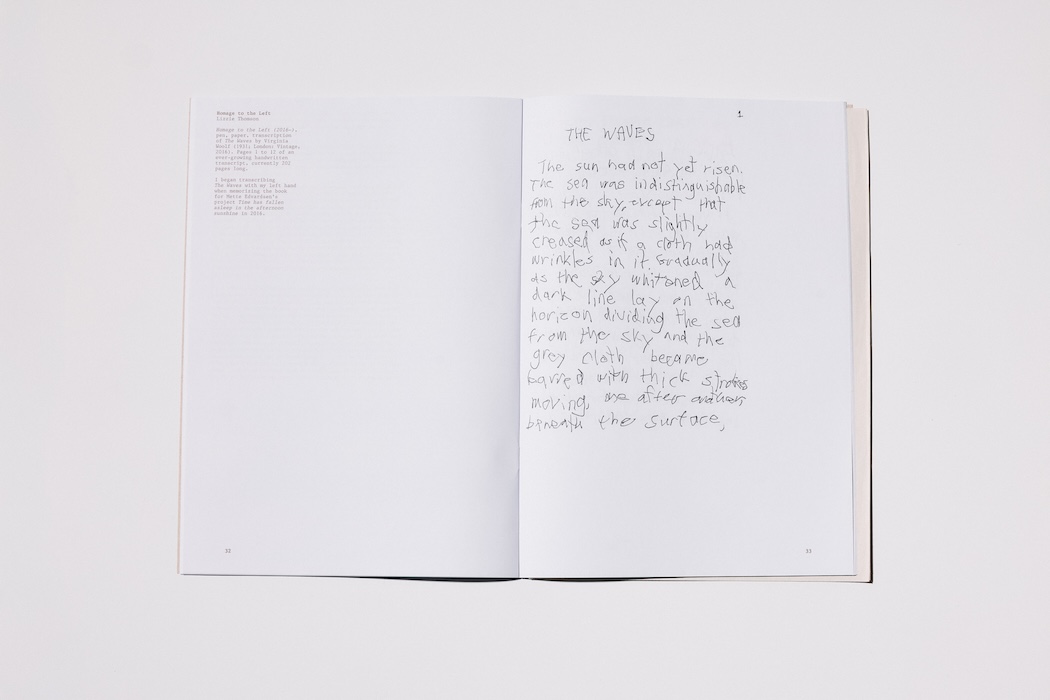 Homage to the Left
Lizzie Thomson
Homage to the Left (2016-),
pen, paper, transcription
of The Waves by Virginia
Woolf (1931; London: Vintage,
2016). Pages 1 to 17 of an
ever-growing handwritten
transcript, currently 202
pages long.
I began transcribing
The Waves with my left hand
when memorising the book
for Mette Edvardsen's
project Time has fallen
asleep in the afternoon
sunshine in 2016.
32
1
THE WAVES
The sun had not yet risen.
The sea was indistinguishable
from the sky, except that
the sea was slightly
creased as if a cloth had
wrinkles in it. Gradually
as the sky whitened a
dark line lay on the
horizon dividing the sea
from the sky and the
grey cloth became
barred with thick strokes
moving, one after another,
beneath the surface,
33